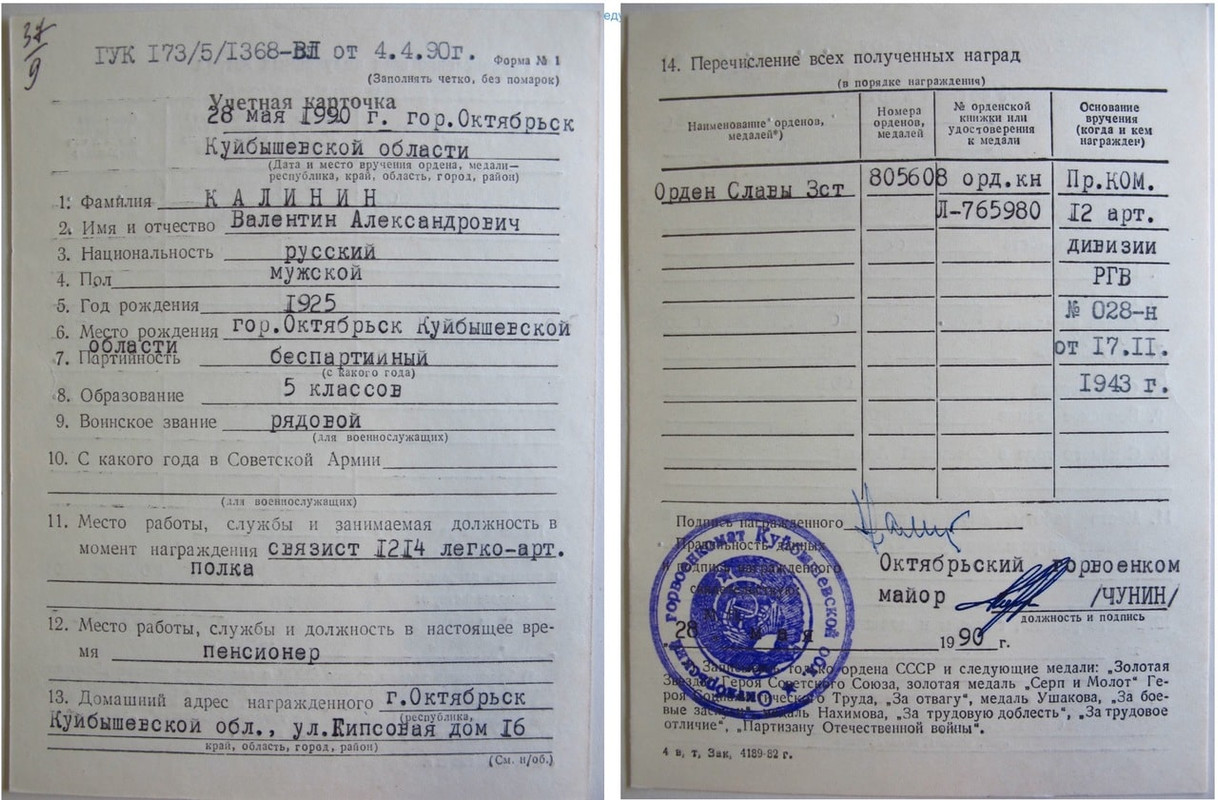 37/9
ГУК 173/5/1368-ВЛ от 4.4.90г. Форма № 1
(Заполнять четко, без помарок)
Учетная карточка
28 мая 1990 г. гор.Октябрьск
Куйбышевской области
(Дата и место вручения ордена, медали—
республика, край, область, город, район)
1. Фамилия КАЛИНИН
2. Имя и отчество Валентин Александрович
3. Национальность русский
4. Пол мужской
5. Год рождения 1925
6. Место рождения гор.Октябрьск Куйбышевской
области
7. Партийность беспартийный
(с какого года)
8. Образование 5 классов
9. Воинское звание рядовой
(для военнослужащих)
10. С какого года в Советской Армии
(для военнослужащих)
11. Место работы, службы и занимаемая должность в
момент награждения связист 1214 легко-арт.
полка
12. Место работы, службы и должность в настоящее вре-
мя пенсионер
13. Домашний адрес награжденного г.Октябрьск
(республика,
Куйбышевской обл., ул.Кипсовая дом 16
край, область, город, район)
(См. н/об.)
14. Перечисление всех полученных наград
(в порядке награждения)
Наименование орденов, медалей*)
Номера орденов, медалей
№ орденской книжки или удостоверения к медали
Основание вручения (когда и кем награжден)
Орден Славы 3ст 805608 орд.кн Пр.КОМ.
Л-765980 12 арт.
дивизии
РГВ
№ 028-н
от 17.11.
1943 г.
Подпись награжденного
Правильность данных
и подпись награжденного
свидетельствую
Октябрьский горвоенком
майор /ЧУНИН/
должность и подпись
28 мая 1990 г.
Записывать только ордена СССР и следующие медали: „Золотая
Звезда" Героя Советского Союза, золотая медаль „Серп и Молот" Ге-
роя Социалистического Труда, „За отвагу", медаль Ушакова, „За бое-
вые заслуги", медаль Нахимова, „За трудовую доблесть", „За трудовое
отличие", „Партизану Отечественной войны".
4 в, т, Зак. 4189-82 г.